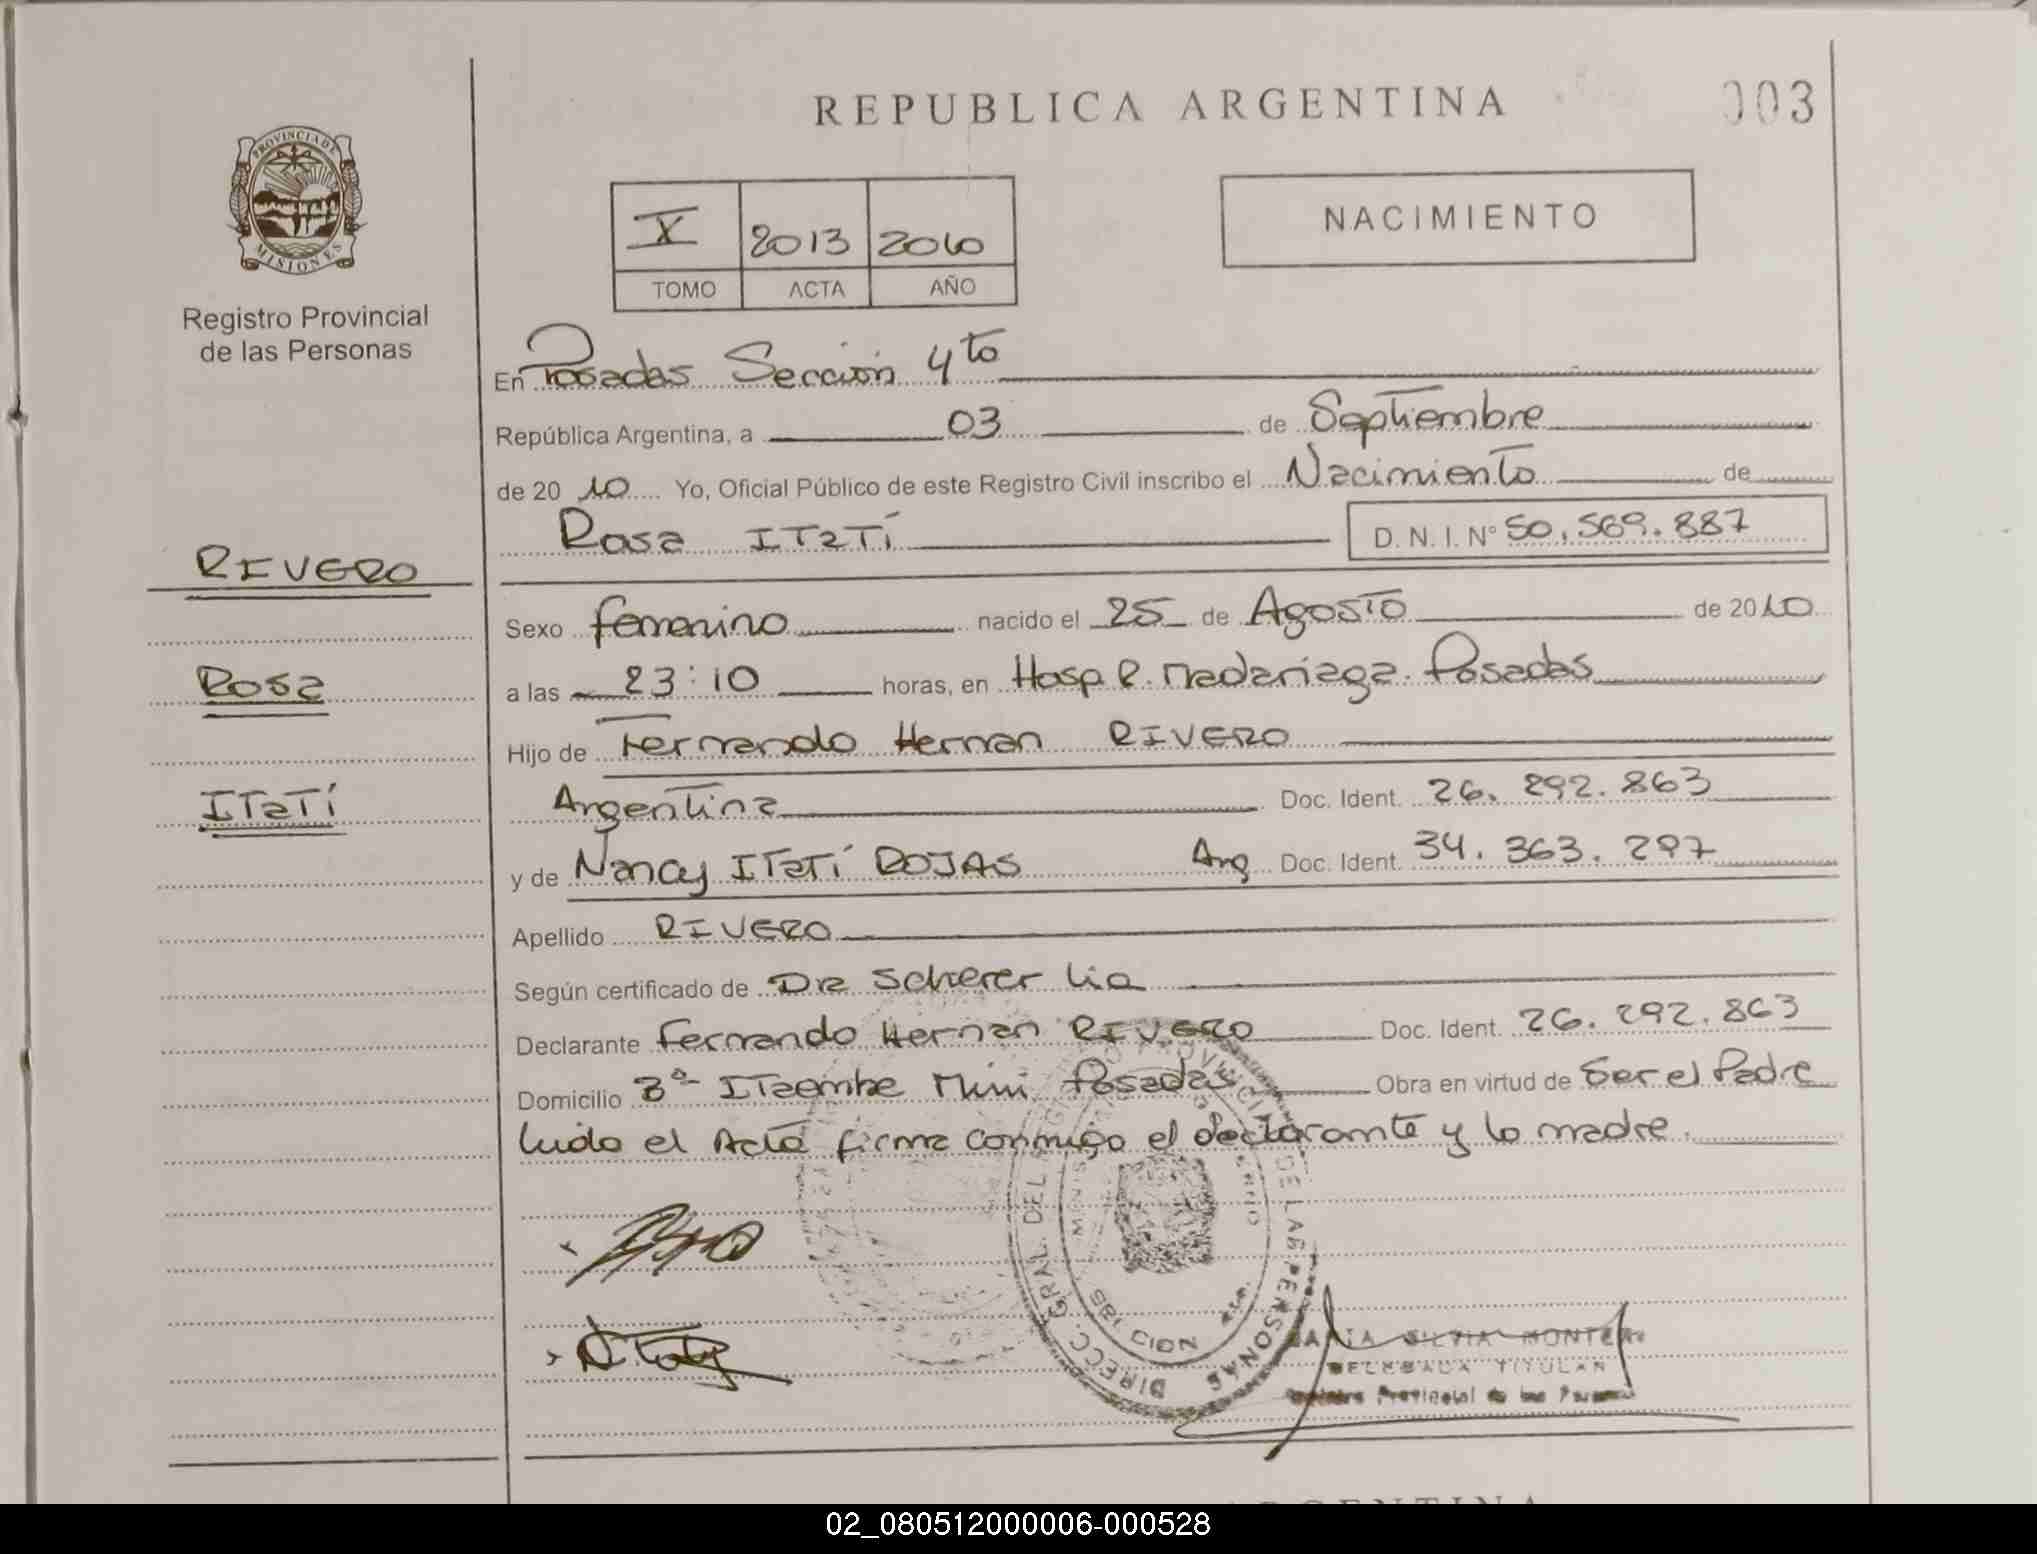 REPUBLICA ARGENTINA
003
PROVINCIA DE
MISIONES
Registro Provincial
de las Personas
X 2013 2010
TOMO ACTA AÑO
NACIMIENTO
En Posadas Sección 4to
República Argentina, a 03 de Septiembre
de 20 10 Yo, Oficial Público de este Registro Civil inscribo el Nacimiento de
Rosa ITaTí D. N. I. Nº 50.569.887
RIVERO
Rosa
ITaTí
Sexo femenino nacido el 25 de Agosto de 2010
a las 23:10 horas, en Hosp R. Madariaga. Posadas
Hijo de Fernando Hernan RIVERO
Argentina Doc. Ident. 26.292.863
y de Nancy ITaTí ROJAS Arg Doc. Ident. 34.363.297
Apellido RIVERO
Según certificado de Dra Scherer Lia
Declarante Fernando Hernan RIVERO Doc. Ident. 26.292.863
Domicilio Bº Itaembe Mini Posadas Obra en virtud de Ser el Padre
Luido el Acta firma conmigo el declarante y la madre.
DIRECC. GRAL. DEL REGISTRO PROVINCIAL DE LAS PERSONAS
SILVIA MONTER
DELEGADA TITULAR
Provincial de las
ARGENTINA
02_080512000006-000528